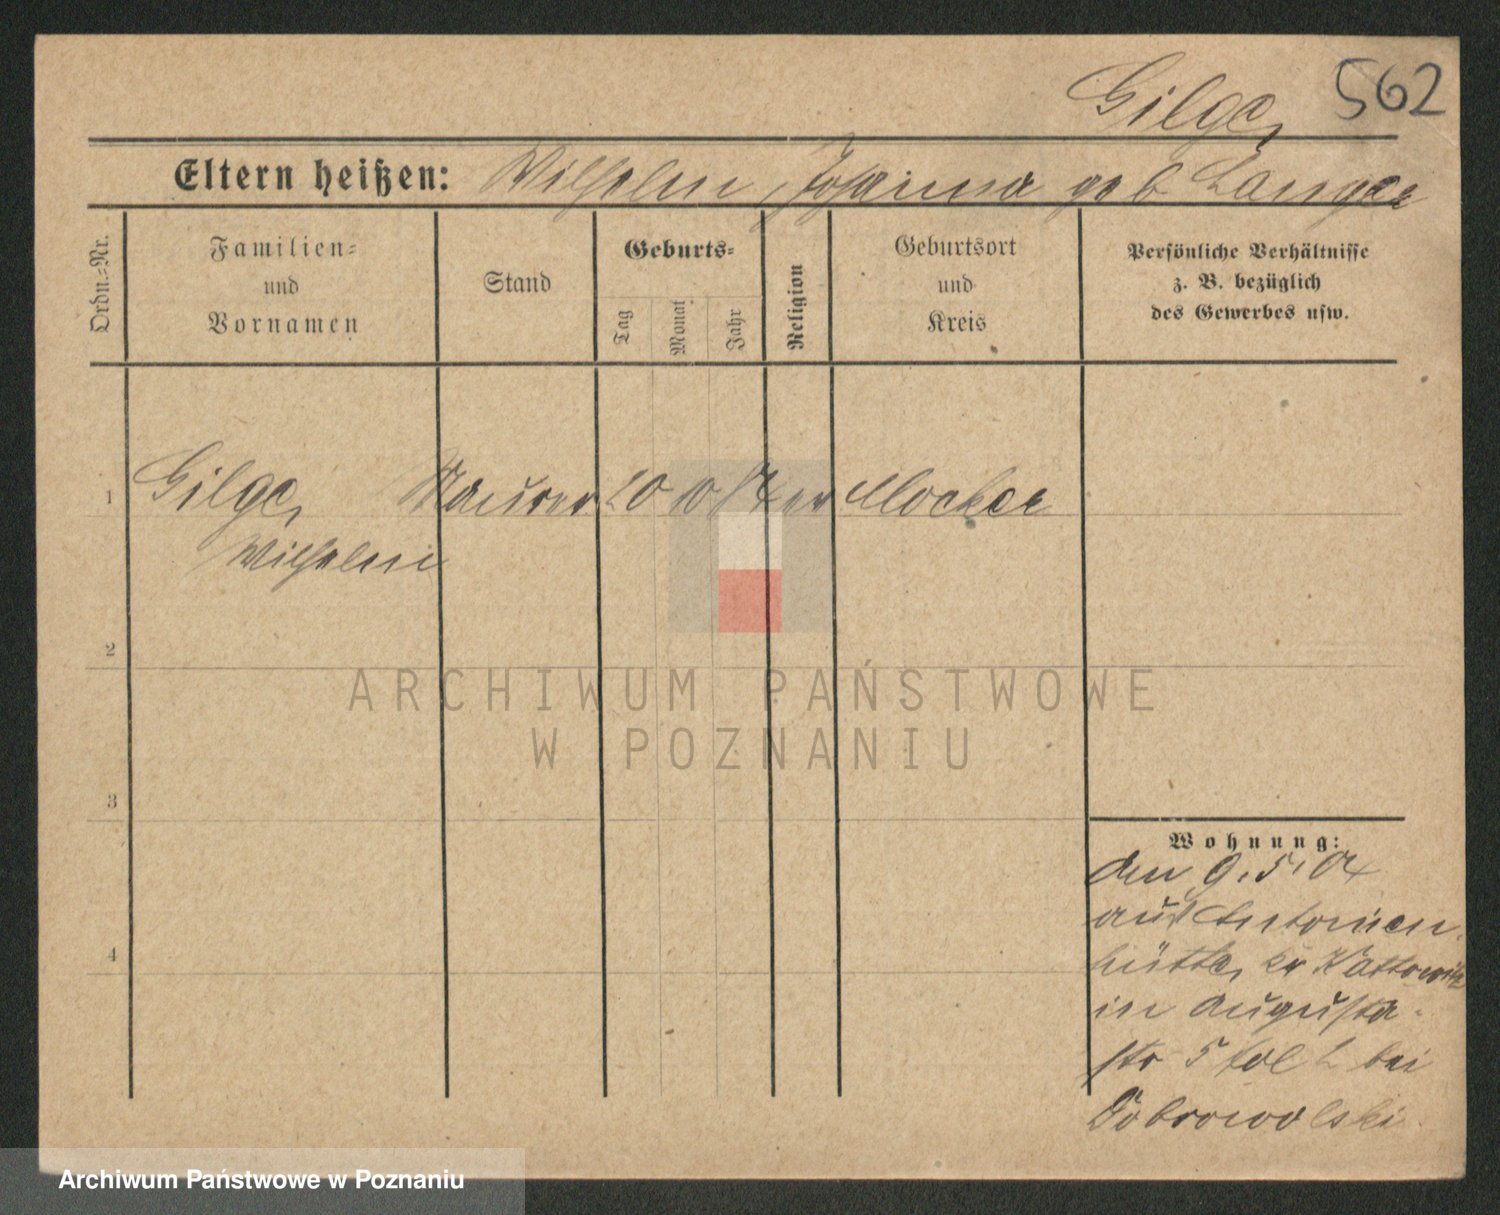 562
Gilge,
Eltern heißen: Wilhelm, Johanna geb Langer
Ordn.-Nr.
Familien-
und
Vornamen
Stand
Geburts-
Tag
Monat
Jahr
Religion
Geburtsort
und
Kreis
Persönliche Verhältnisse
z. B. bezüglich
des Gewerbes usw.
1 Gilge, Maurer 10 ev Mocker
Wilhelm
2
3
4
Wohnung:
den 9.5.04
aus Antonien
hütte, kr Kattowitz
in Augusta-
str 5 bei
Dobrowolski
ARCHIWUM PAŃSTWOWE
W POZNANIU
Archiwum Państwowe w Poznaniu